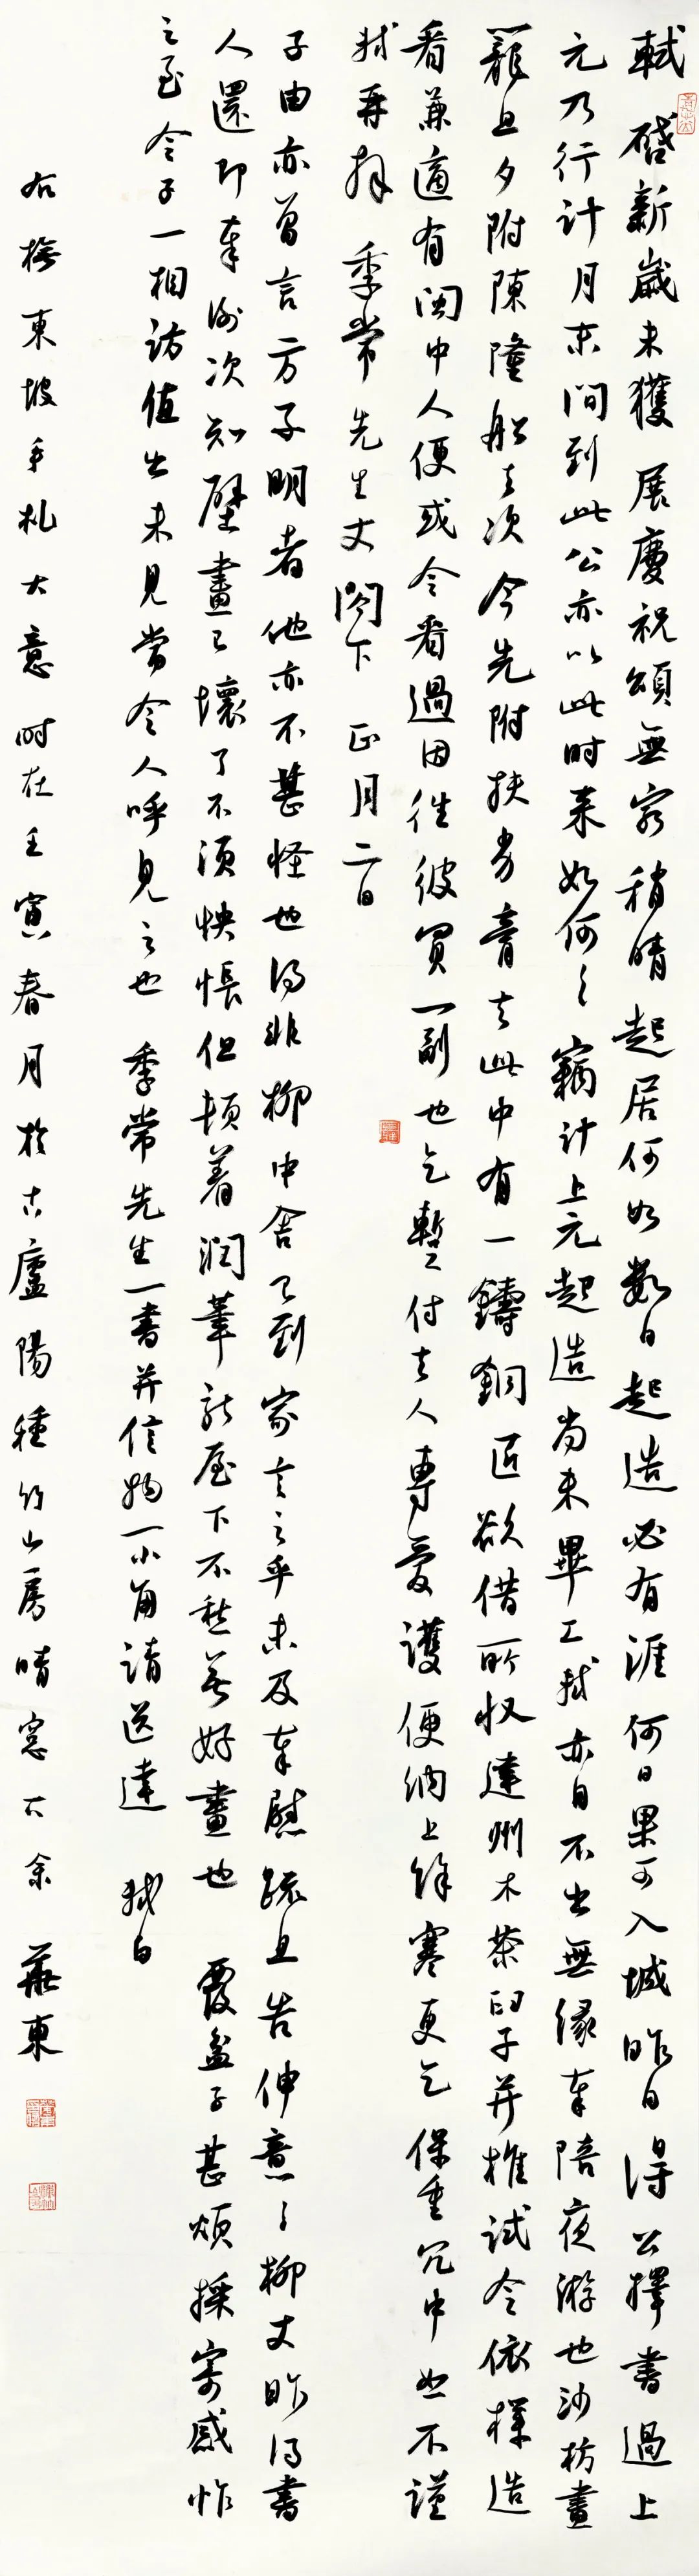 軾啓新歲未獲展慶祝頌無窮稍晴起居何如數日起造必有涯何日果可入城昨日得公擇書過上
元乃行計月末間到此公亦以此時來如何〻竊計上元起造尚未畢工軾亦自不出無緣奉陪夜游也沙枋畫
籠旦夕附陳隆船去次今先附扶劣膏去此中有一鑄銅匠欲借所收建州木茶臼子并椎試令依樣造
看兼適有閩中人便或令看過因往彼買一副也乞暫付去人專愛護便納上餘寒更乞保重冗中恕不謹
軾再拜季常先生丈閣下正月二日
子由亦曾言方子明者他亦不甚怪也得非柳中舍已到家言之乎未及奉慰疏且告伸意〻柳丈昨得書
人還即奉謝次知壁畫已壞了不須怏悵但頓着潤筆新屋下不愁無好畫也覆盆子甚煩採寄感怍
之至令子一相訪值出未見當令人呼見之也季常先生一書并信物一小角請送達軾白
右橅東坡手札大意時在壬寅春月於古廬陽種竹山房晴窗下余華東